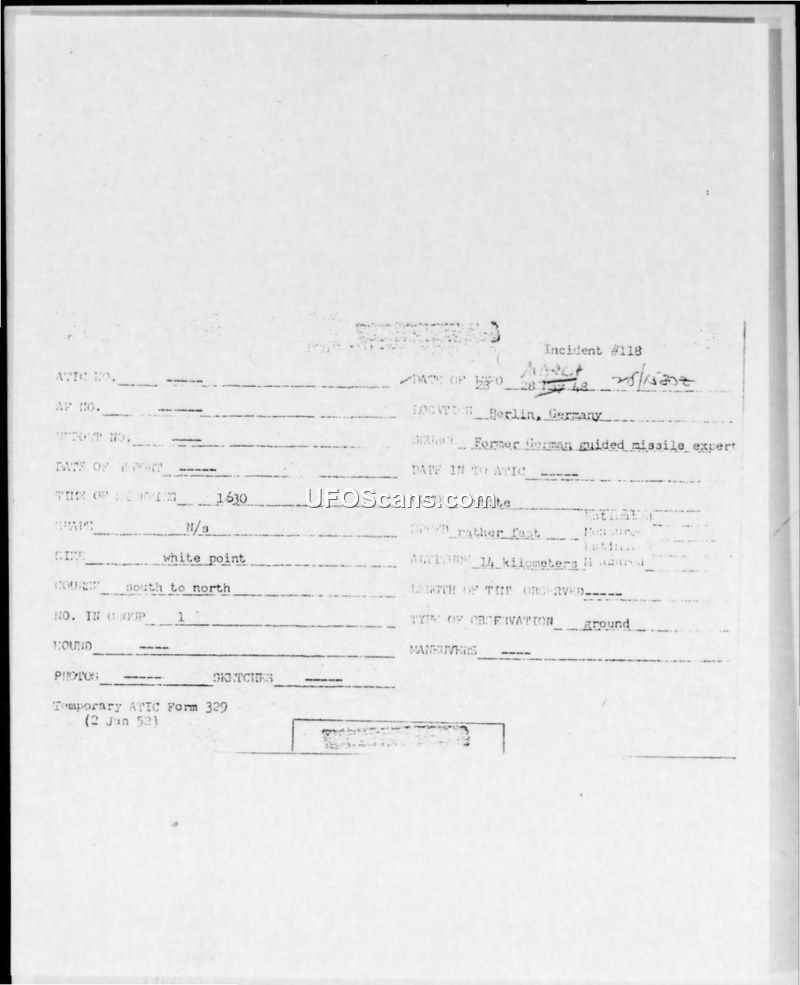 Incident #118
ATIC NO. -----
DATE OF INFO 28 28 48 MARCH
AF NO. -----
LOCATION Berlin, Germany
REPORT NO. ----
SOURCE Former German guided missile expert
DATE OF REPORT -----
DATE IN TO ATIC -----
TIME OF SIGHTING 1630
UFOScans.com
SHAPE N/s
SPEED rather fast
Estimated
Measured
SIZE white point
ALTITUDE 14 kilometers
Estimated
Measured
COURSE south to north
LENGTH OF TIME OBSERVED -----
NO. IN GROUP 1
TYPE OF OBSERVATION ground
SOUND ----
MANEUVERS ----
PHOTOS -----
SKETCHES -----
Temporary ATIC Form 329
(2 Jan 52)